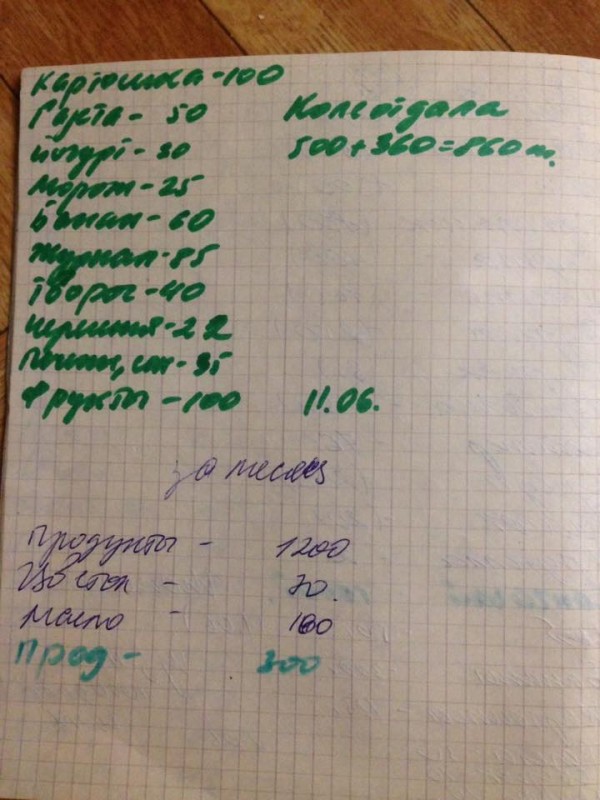 Картошка - 100
Газета - 50
Йогурт - 30
Морож - 25
Банан - 60
Журнал - 85
Творог - 40
22
Печен, - 35
Фрукты - 100
Коле отдала
500 + 360 = 860 т.
11.06.
за месяц
Продукты - 1200
70
Масло - 100
Прод - 300